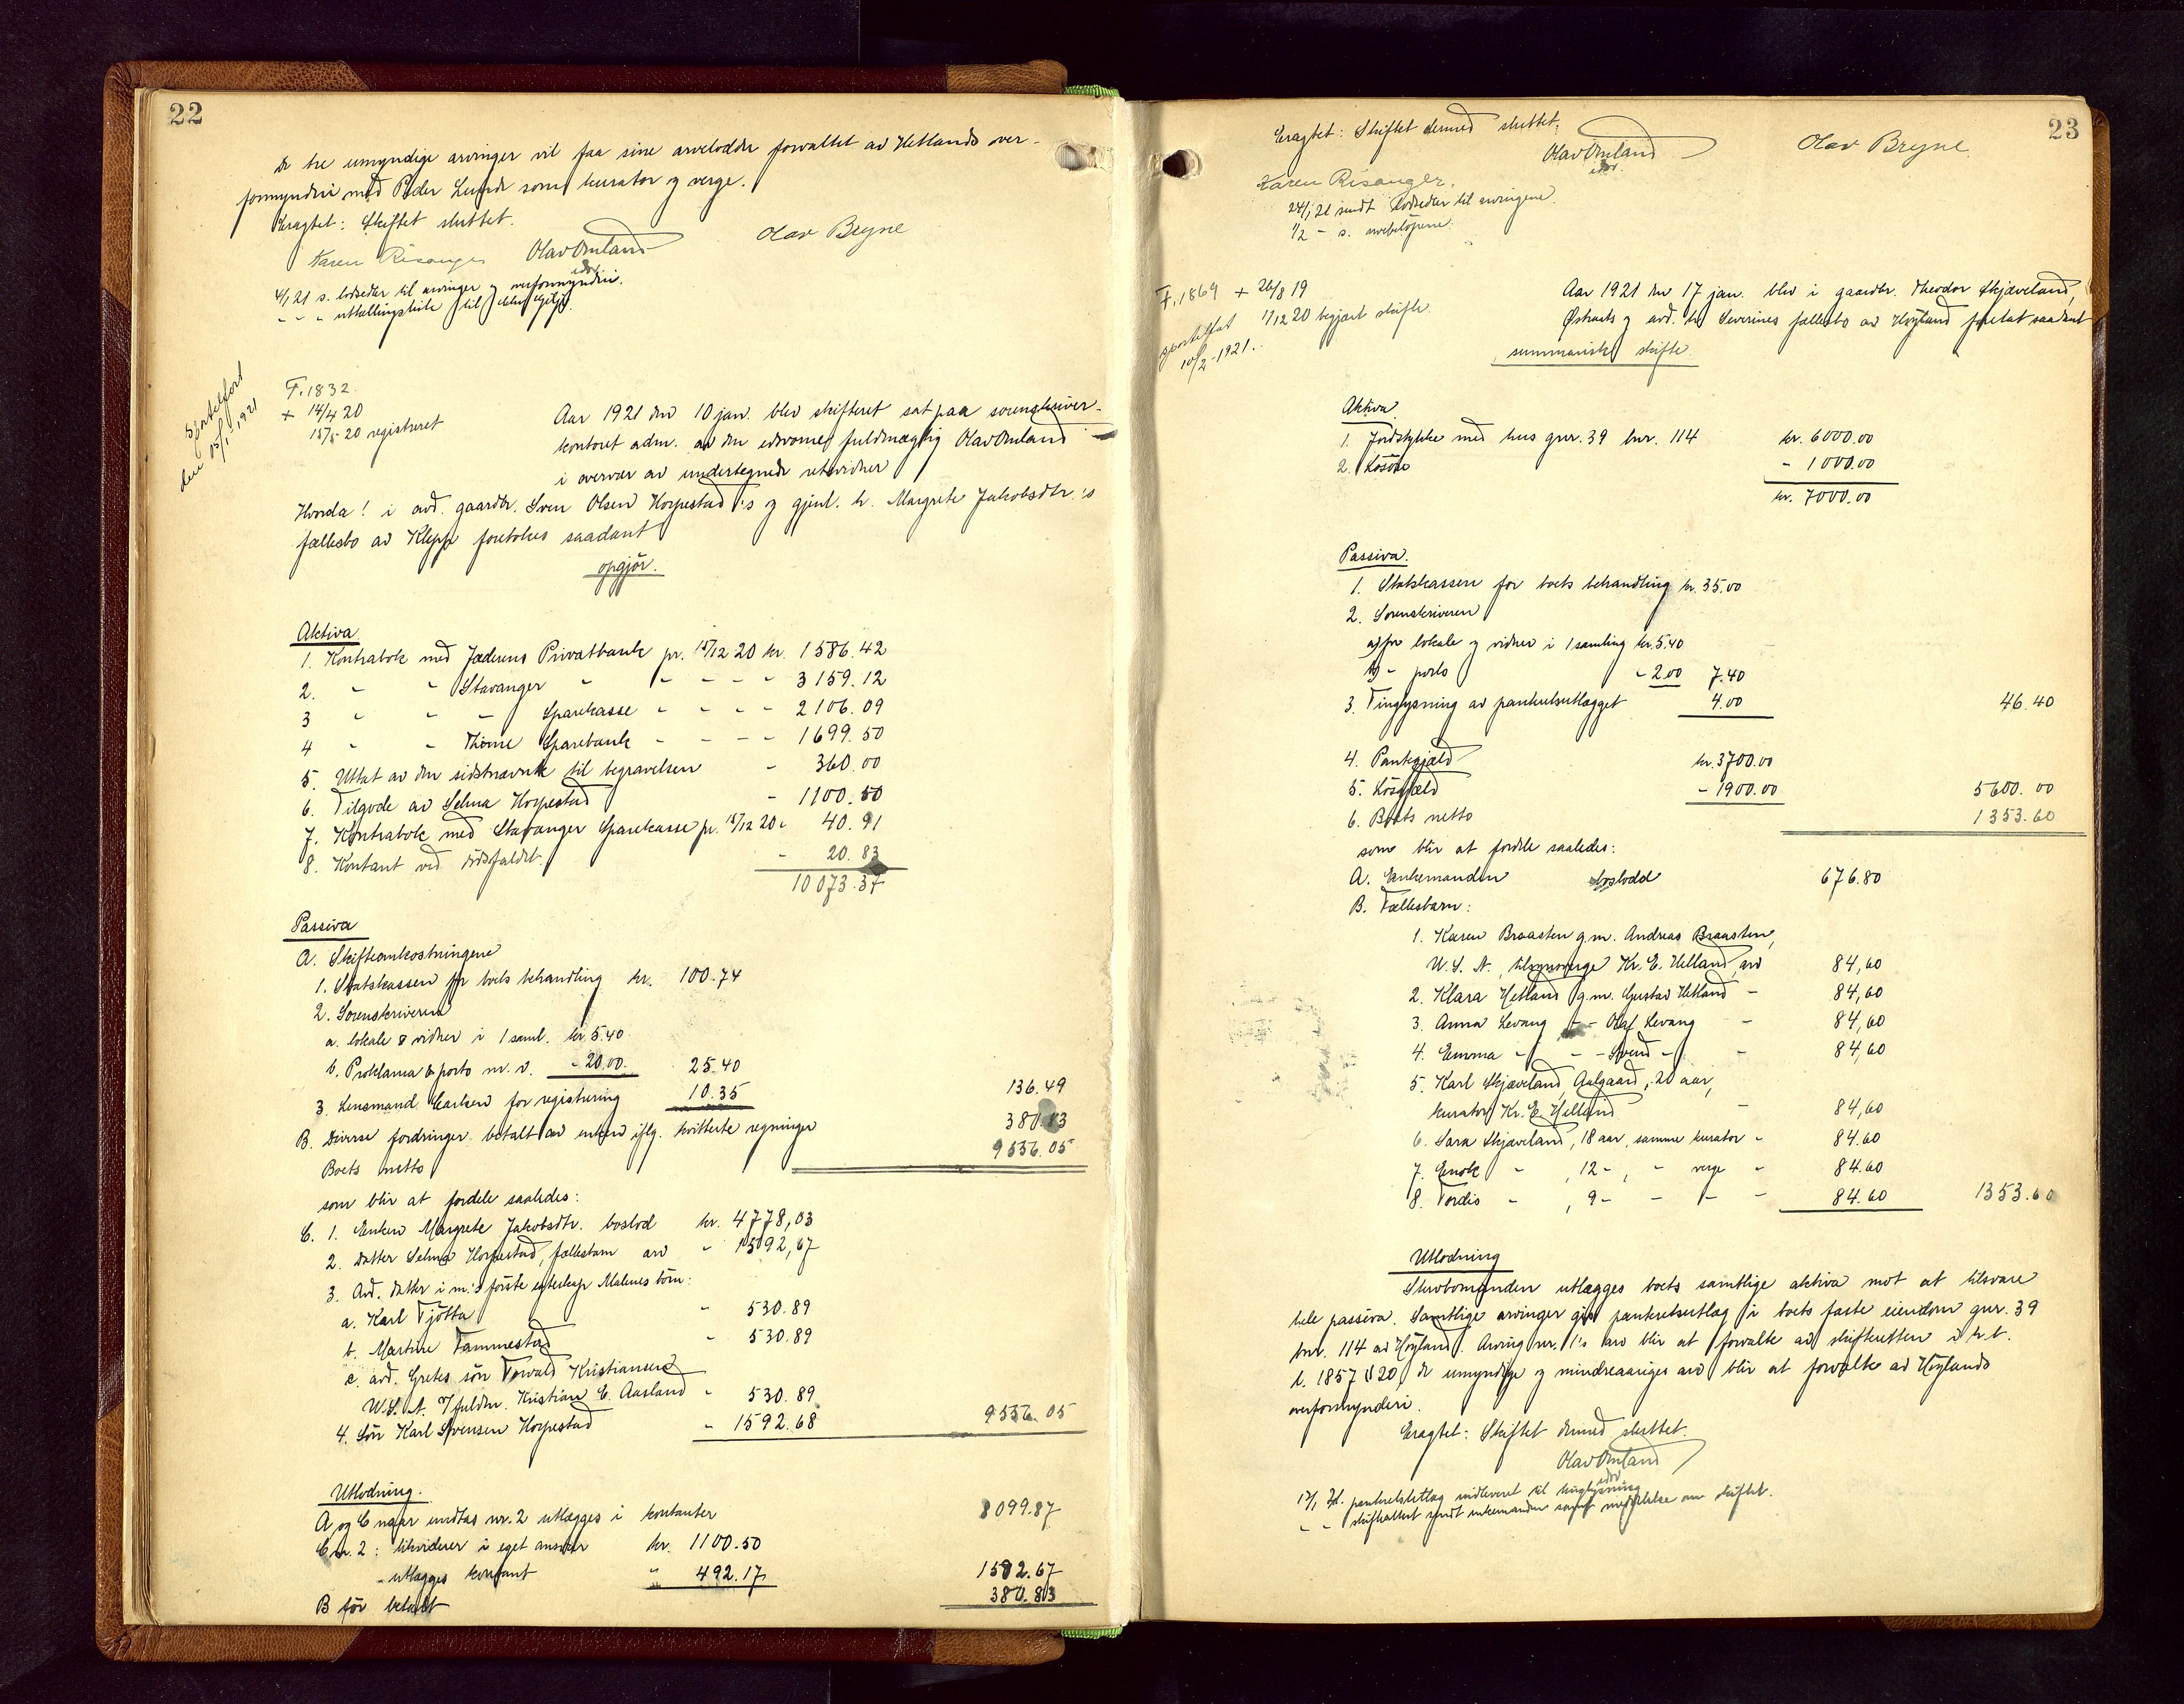 22
de tre umyndige arvinger vil faa sine arvelodder forvaltet av Hetlands over-
formynderi med Peder Lunde som kurator og verge.
Eragtet: Skiftet sluttet.
Karen Risanger OlavOmland Olav Bryne
edsv.
4/1 21 s. lodsedler til arvinger og overformynderi.
sportelført
den 15/1 1921
F. 1832.
+ 14/4 20
15/5 20 registreret
Aar 1921 den 10 jan. blev skifteret sat paa sorenskriver-
kontoret adm. av den edsvorne fuldmægtig OlavOmland
i overvær av undertegnede retsvidner
Hvorda! i avd. gaardbr. Sven Olsen Horpestad's og gjenl. h. Margrete Jakobsdtr.'s
fællesbo av Klepp foretokes saadant
opgjør.
Aktiva
1. Kontrabok med Jæderens Privatbank pr. 15/12 20 kr. 1586.42
2. " " Stavanger " " - - - 3159.12
3 " " " Sparekasse - - - - 2106.09
4 " " Thime Sparebank - - - - 1699.50
5. Uttat av den sidstnævnte til begravelsen - 360.00
6. Tilgode av Selma Horpestad - 1100.50
7. Kontrabok med Stavanger Sparekasse pr. 15/12 20 - 40.91
8. Kontant ved dødsfaldet - 20.83
10073.37
Passiva
A. Skifteomkostningene
1. Statskassen for boets behandling kr. 100.74
2. Sorenskriveren
a. lokale & vidner i 1 saml. kr. 5.40
b. Proklama & porto m.v. - 20.00 25.40
3. Lensmand Carlsen for registrering 10.35 136.49
B. Diverse fordringer betalt av enken iflg. kvitterte regninger 380.83
Boets netto 9556.05
som blir at fordele saaledes:
C. 1. Enken Margrete Jakobsdtr. boslod kr. 4778,03
2. Datter Selma Horpestad, fællesbarn arv - 1592,67
3. Avd. datter i m.'s første egteskap Malenes børn:
a. Karl Tjøtta - 530.89
b. Martine Tammestad - 530.89
c. avd. Gretes søn Torvald Kristiansen
U.S.A. v/ fuldm. Kristian E. Aasland - 530.89
4. Søn Karl Svensen Horpestad - 1592.68 9556.05
Utlodning.
A og C naar undtas nr. 2 utlægges i kontanter 8099.87
C nr. 2: likviderer i eget ansvar kr. 1100.50
- utlægges kontant " 492.17 1592.67
B før betalt 380.83
23
Eragtet: Skiftet dermed sluttet.
OlavOmland Olav Bryne
edsv.
Karen Risanger.
24/1 21 sendt lodsedler til arvingene.
1/2 - s. arvebeløpene.
F. 1869 + 26/8 19
1/12 20 begjært skifte.
sportelført
10/2-1921.
Aar 1921 den 17 jan. blev i gaardbr. Theodor Skjæveland,
Østraats og avd. h. Severines fællesbo av Høyland foretat saadant
summarisk skifte.
Aktiva
1. Jordstykke med hus gnr. 39 bnr. 114 kr. 6000.00
2. Løsøre - 1000.00
kr. 7000.00
Passiva.
1. Statskassen for boets behandling kr. 35.00
2. Sorenskriveren
a) for lokale og vidner i 1 samling kr. 5.40
b) - porto - 2.00 7.40
3. Tinglysning av panteutlægget 4.00 46.40
4. Pantegjæld kr. 3700.00
5. Løsgjæld - 1900.00 5600.00
6. Boets netto 1353.60
som blir at fordele saaledes:
A. Enkemanden boslodd 676.80
B. Fællesbarn:
1. Karen Braasten g.m. Andreas Braasten,
U.S.A., tilsynsverge Kr. E. Helland arv 84,60
2. Klara Hetland g.m. Gustav Hetland - 84,60
3. Anna Levang - - Olaf Levang - 84,60
4. Emma - - - Svend - - 84,60
5. Karl Skjæveland, Aalgaard, 20 aar,
kurator Kr. E. Helland - 84,60
6. Sara Skjæveland, 18 aar, samme kurator - 84.60
7. Enok - , 12 - , - verge - 84.60
8. Tordis - , 9 - - - - 84.60 1353.60
Utlodning
Skrubomanden utlægges boets samtlige aktiva mot at tilsvare
hele passiva. Samtlige arvinger gis panteretsutlæg i boets faste eiendom gnr. 39
bnr. 114 av Høyland. Arving nr. 1's arv blir at forvalte av skifteretten i h.t.
l. 1857 § 20, de umyndige og mindreaariges arv blir at forvalte av Høylands
overformynderi.
Eragtet: Skiftet dermed sluttet.
OlavOmland
edsv
17/1 21. panteretsutlæg indleveret til tinglysning
" - skifteattest sendt enkemanden samt meddelelse om skiftet.